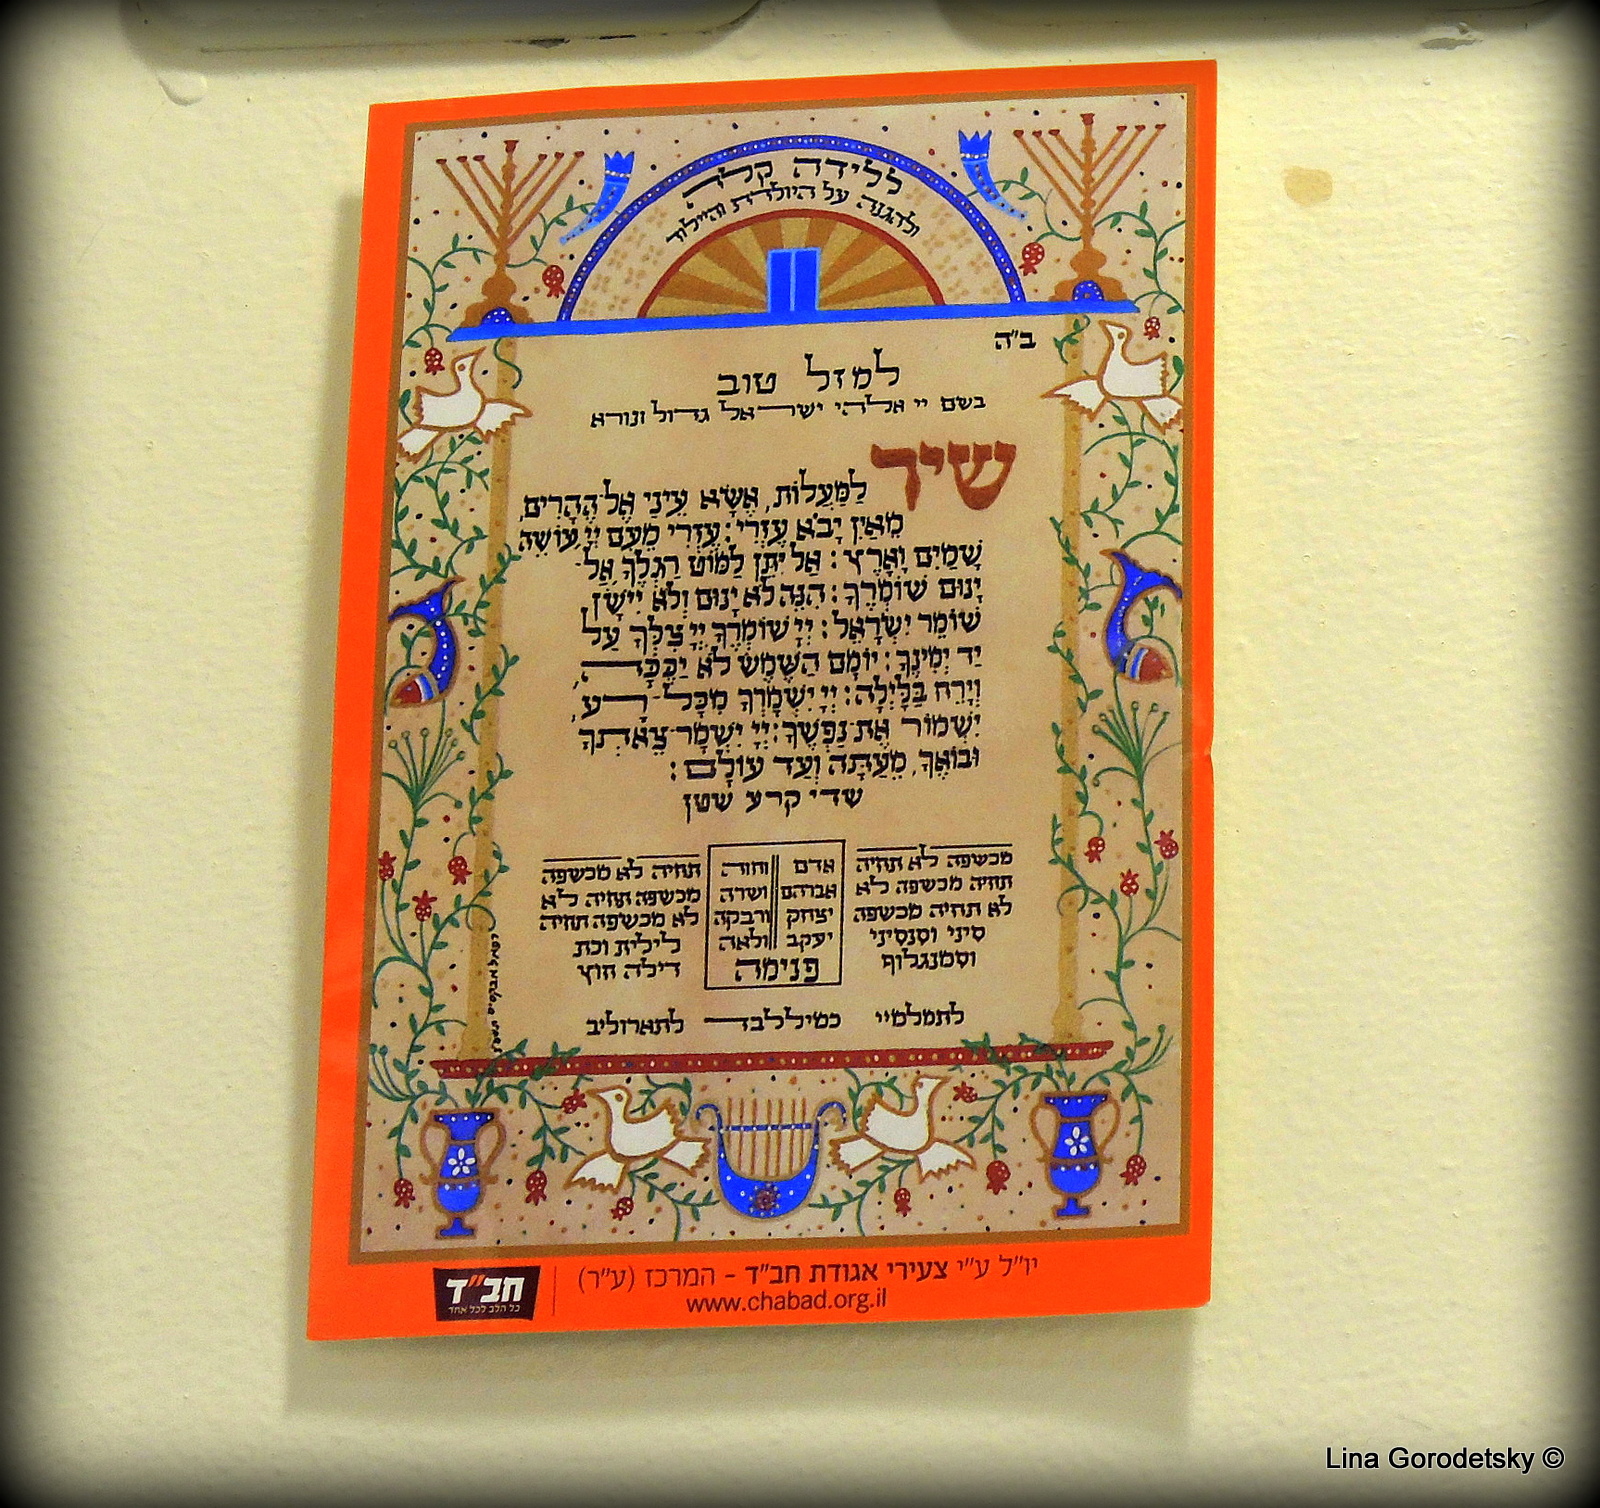 ללידה קלה
ולהגנה על היולדת והיילוד
ב"ה
למזל טוב
בשם יי אלהי ישראל גדול ונורא
שיר
לַמַּעֲלוֹת, אֶשָּׂא עֵינַי אֶל הֶהָרִים,
מֵאַיִן יָבֹא עֶזְרִי: עֶזְרִי מֵעִם יְיָ, עוֹשֵׂה
שָׁמַיִם וָאָרֶץ: אַל יִתֵּן לַמּוֹט רַגְלֶךָ, אַל
יָנוּם שׁוֹמְרֶךָ: הִנֵּה לֹא יָנוּם וְלֹא יִישָׁן
שׁוֹמֵר יִשְׂרָאֵל: יְיָ שׁוֹמְרֶךָ יְיָ צִלְּךָ עַל
יַד יְמִינֶךָ: יוֹמָם הַשֶּׁמֶשׁ לֹא יַכֶּכָּה,
וְיָרֵחַ בַּלָּיְלָה: יְיָ יִשְׁמָרְךָ מִכָּל רָע,
יִשְׁמוֹר אֶת נַפְשֶׁךָ: יְיָ יִשְׁמָר צֵאתְךָ
וּבוֹאֶךָ, מֵעַתָּה וְעַד עוֹלָם:
שדי קרע שטן
מכשפה לא תחיה
תחיה מכשפה לא
לא תחיה מכשפה
סיני וסנסיני
וסמנגלוף
אדם וחווה
אברהם ושרה
יצחק ורבקה
יעקב ולאה
פנימה
תחיה לא מכשפה
מכשפה תחיה לא
לא מכשפה תחיה
לילית וכת
דילה חוץ
לתמלמיי כמיללבד לתארוליב
יו"ל ע"י צעירי אגודת חב"ד - המרכז (ע"ר)
www.chabad.org.il
חב"ד
כל הלב לכל אחד
Lina Gorodetsky ©